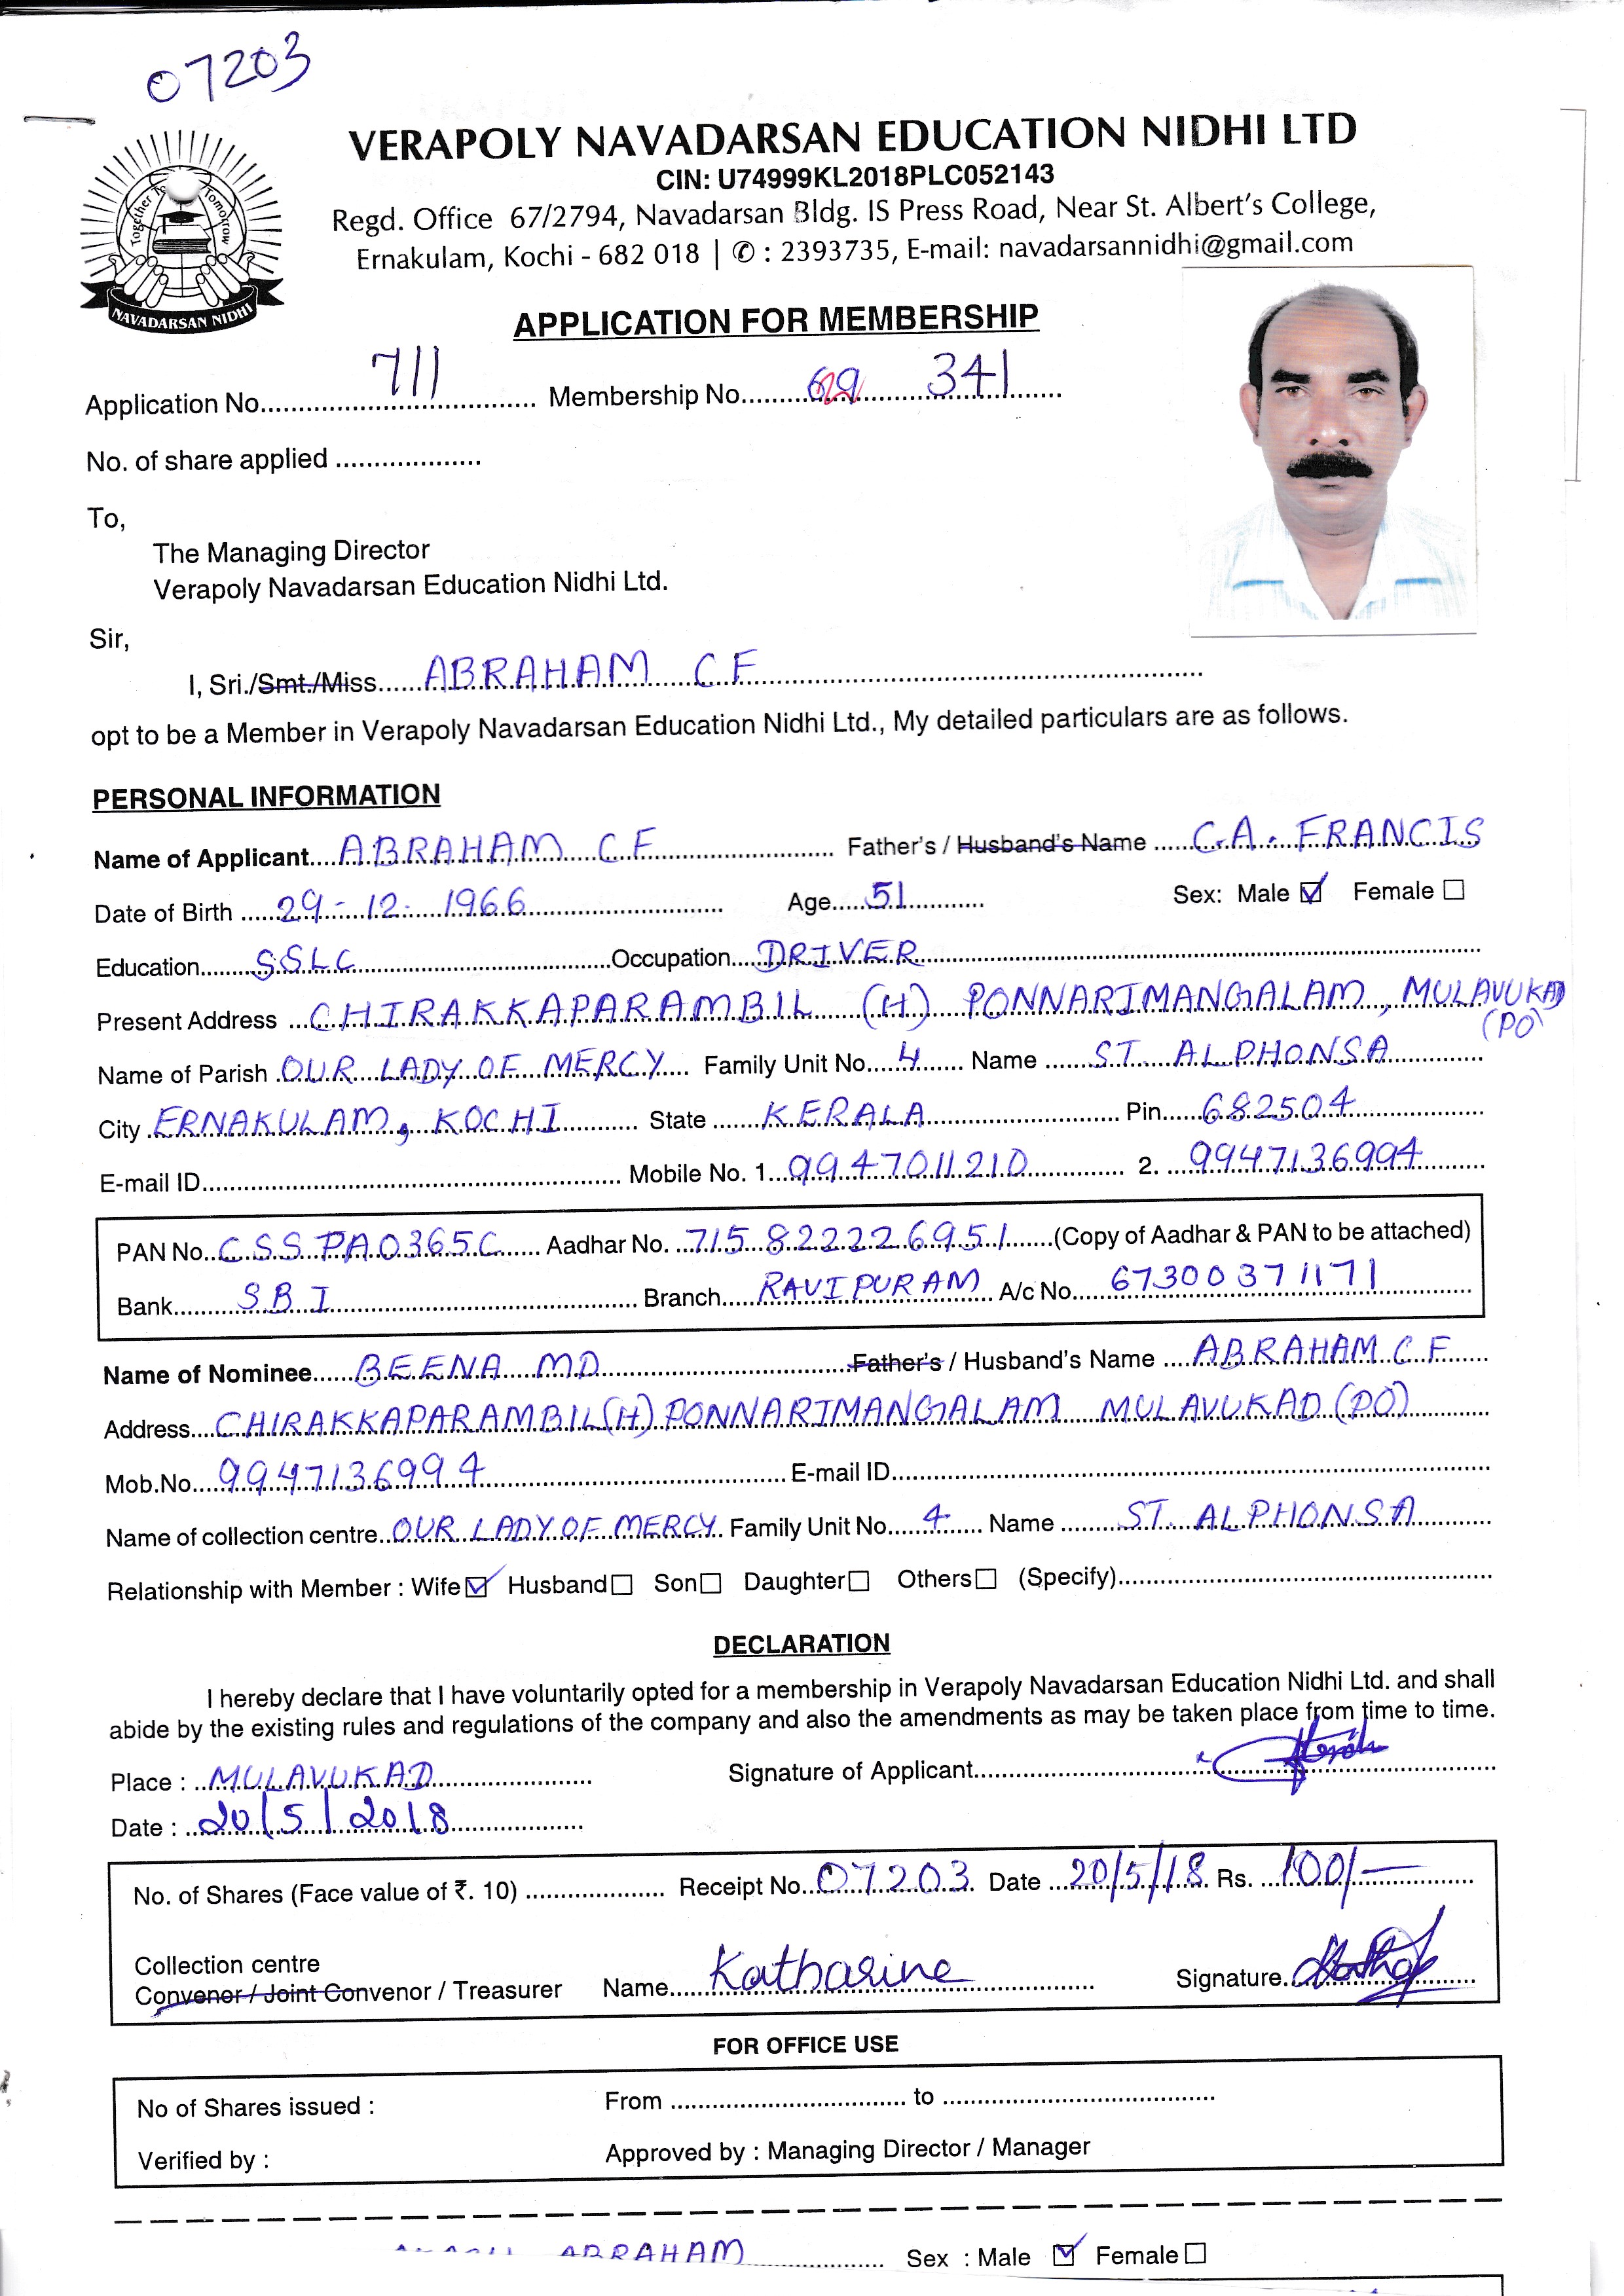 07203
VERAPOLY NAVADARSAN EDUCATION NIDHI LTD
CIN: U74999KL2018PLC052143
Regd. Office 67/2794, Navadarsan Bldg. IS Press Road, Near St. Albert's College,
Ernakulam, Kochi - 682 018 | ✆ : 2393735, E-mail: navadarsannidhi@gmail.com
Together To Tomorrow
NAVADARSAN NIDHI
APPLICATION FOR MEMBERSHIP
Application No. 711 Membership No. 341
No. of share applied
To,
The Managing Director
Verapoly Navadarsan Education Nidhi Ltd.
Sir,
I, Sri./Smt./Miss ABRAHAM C F
opt to be a Member in Verapoly Navadarsan Education Nidhi Ltd., My detailed particulars are as follows.
PERSONAL INFORMATION
Name of Applicant ABRAHAM C F Father's / Husband's Name C.A. FRANCIS
Date of Birth 29-12-1966 Age 51 Sex: Male ☑ Female ☐
Education SSLC Occupation DRIVER
Present Address CHIRAKKAPARAMBIL (H) PONNARIMANGALAM, MULAVUKAD
(PO)
Name of Parish OUR LADY OF MERCY Family Unit No. 4 Name ST. ALPHONSA
City ERNAKULAM, KOCHI State KERALA Pin 682504
E-mail ID Mobile No. 1 9947011210 2. 9947136994
PAN No. CSSPA0365C Aadhar No. 715822226951 (Copy of Aadhar & PAN to be attached)
Bank SBI Branch RAVIPURAM A/c No. 67300371171
Name of Nominee BEENA MD Father's / Husband's Name ABRAHAM C F
Address CHIRAKKAPARAMBIL (H) PONNARIMANGALAM MULAVUKAD (PO)
Mob.No. 9947136994 E-mail ID
Name of collection centre OUR LADY OF MERCY Family Unit No. 4 Name ST. ALPHONSA
Relationship with Member : Wife ☑ Husband ☐ Son ☐ Daughter ☐ Others ☐ (Specify)
DECLARATION
I hereby declare that I have voluntarily opted for a membership in Verapoly Navadarsan Education Nidhi Ltd. and shall
abide by the existing rules and regulations of the company and also the amendments as may be taken place from time to time.
Place : MULAVUKAD Signature of Applicant
Date : 20/5/2018
No. of Shares (Face value of ₹. 10) Receipt No. 07203 Date 20/5/18 Rs. 100/-
Collection centre
Convenor / Joint Convenor / Treasurer Name Katharine Signature
FOR OFFICE USE
No of Shares issued : From to
Verified by : Approved by : Managing Director / Manager
ABRAHAM Sex : Male ☑ Female ☐